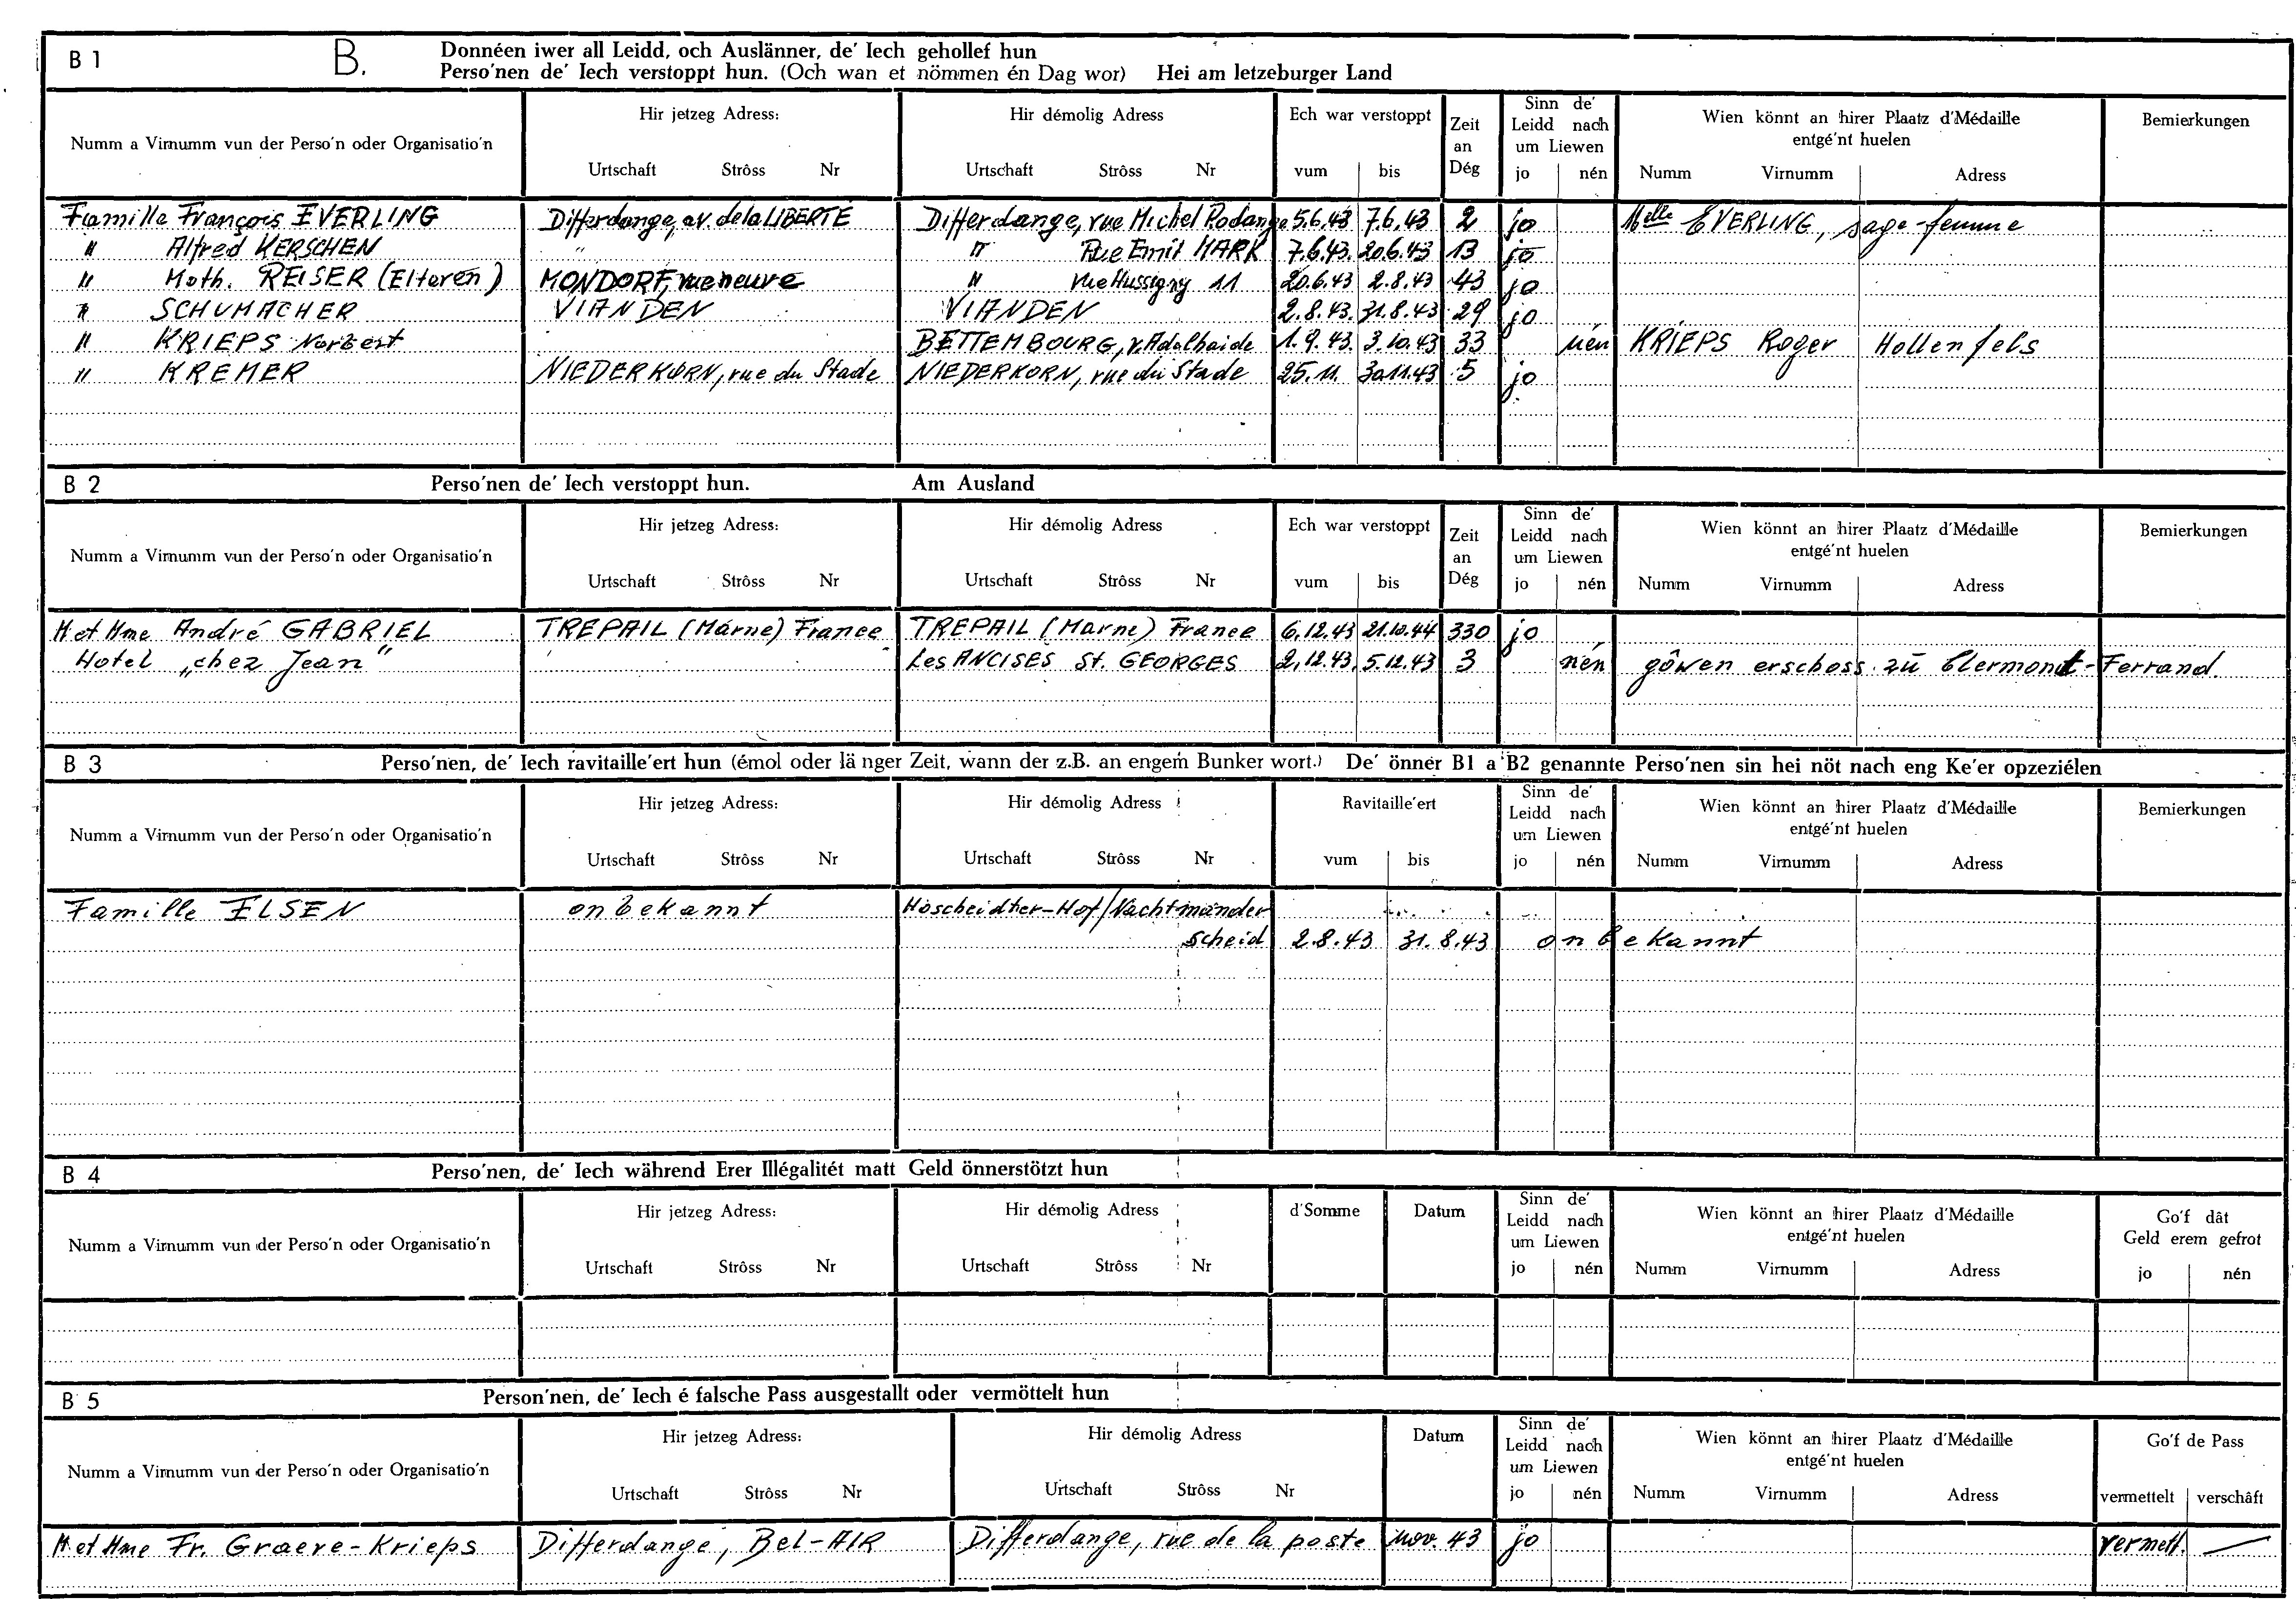 B 1 B. Donnéen iwer all Leidd, och Auslänner, de' Iech gehollef hun
Perso'nen de' Iech verstoppt hun. (Och wan et nömmen én Dag wor) Hei am letzeburger Land
Numm a Virnumm vun der Perso'n oder Organisatio'n Hir jetzeg Adress: Hir démolig Adress Ech war verstoppt Zeit an Dég Sinn de' Leidd nach um Liewen Wien könnt an hirer Plaatz d'Médaille entgé'nt huelen Bemierkungen
Urtschaft Strôss Nr Urtschaft Strôss Nr vum bis jo nén Numm Virnumm Adress
Famille François EVERLING Differdange, av. de la LIBERTÉ Differdange, rue Michel Rodange 5.6.43 7.6.43 2 jo Melle EVERLING, sage-femme
" Alfred KERSCHEN " " Rue Emil MARK 7.6.43. 20.6.43 13 jo
" Math. REISER (Elteren) MONDORF, rue neuve " rue Hussigny 11 20.6.43 2.8.43 43 jo
" SCHUMACHER VIANDEN VIANDEN 2.8.43. 31.8.43 29 jo
" KRIEPS Norbert BETTEMBOURG, r. Adelhaide 1.9.43. 3.10.43 33 nén KRIEPS Roger Hollenfels
" KREMER NIEDERKORN, rue du Stade NIEDERKORN, rue du Stade 25.11. 30.11.43 5 jo
B 2 Perso'nen de' Iech verstoppt hun. Am Ausland
Numm a Virnumm vun der Perso'n oder Organisatio'n Hir jetzeg Adress: Hir démolig Adress Ech war verstoppt Zeit an Dég Sinn de' Leidd nach um Liewen Wien könnt an hirer Plaatz d'Médaille entgé'nt huelen Bemierkungen
Urtschaft Strôss Nr Urtschaft Strôss Nr vum bis jo nén Numm Virnumm Adress
M et Mme André GABRIEL TREPAIL (Marne) France TREPAIL (Marne) France 6.12.43 21.10.44 330 jo
Hotel „chez Jean" Les ANCISES St. GEORGES 2.12.43. 5.12.43 3 nén gôwen erschoss zu Clermont-Ferrand.
B 3 Perso'nen, de' Iech ravitaille'ert hun (émol oder länger Zeit, wann der z.B. an engem Bunker wort.) De' önner B1 a B2 genannte Perso'nen sin hei nöt nach eng Ke'er opzeziélen
Numm a Virnumm vun der Perso'n oder Organisatio'n Hir jetzeg Adress: Hir démolig Adress Ravitaille'ert Sinn de' Leidd nach um Liewen Wien könnt an hirer Plaatz d'Médaille entgé'nt huelen Bemierkungen
Urtschaft Strôss Nr Urtschaft Strôss Nr vum bis jo nén Numm Virnumm Adress
Famille ELSEN onbekannt Hoscheidter-Hof/Nachtmander
scheid 2.8.43 31.8.43 onbekannt
B 4 Perso'nen, de' Iech während Erer Illégalitét matt Geld önnerstötzt hun
Numm a Virnumm vun der Perso'n oder Organisatio'n Hir jetzeg Adress: Hir démolig Adress d'Somme Datum Sinn de' Leidd nach um Liewen Wien könnt an hirer Plaatz d'Médaille entgé'nt huelen Go'f dât Geld erem gefrot
Urtschaft Strôss Nr Urtschaft Strôss Nr jo nén Numm Virnumm Adress jo nén
B 5 Person'nen, de' Iech é falsche Pass ausgestallt oder vermöttelt hun
Numm a Virnumm vun der Perso'n oder Organisatio'n Hir jetzeg Adress: Hir démolig Adress Datum Sinn de' Leidd nach um Liewen Wien könnt an hirer Plaatz d'Médaille entgé'nt huelen Go'f de Pass
Urtschaft Strôss Nr Urtschaft Strôss Nr jo nén Numm Virnumm Adress vermettelt verschâft
M et Mme Fr. Graeve-Krieps Differdange, Bel-AIR Differdange, rue de la poste nov. 43 jo vermett. —